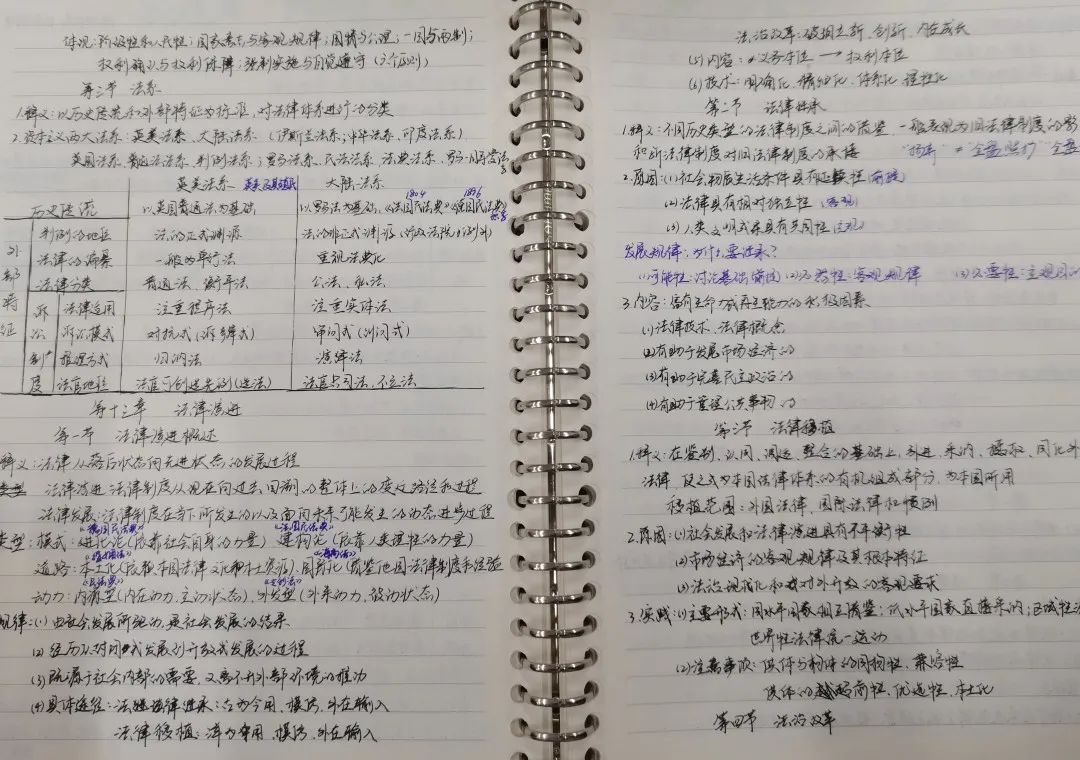 体现:阶级性和人民性;国家意志与客观规律;国情与公理;一国与两制;
权利确认与权利保障;强制实施与自觉遵守(6个原则)
第三节 法系
1.释义:以历史渊源和外部特征为标准,对法律体系进行的分类
2.资本主义两大法系:英美法系、大陆法系(伊斯兰法系;中华法系、印度法系)
英国法系、普通法法系、判例法系;罗马法系、民法法系、法典法系、罗马-日耳曼法系
英美法系 英美及其殖民 大陆法系
1804 1896
历史渊源 以英国普通法为基础 以罗马法为基础、《法国民法典》《德国民法典》
外部特征
判例的地位 法的正式渊源 法的非正式渊源(行政法院的例外)
法律的编纂 一般为单行法 重视法典化
法律分类 普通法、衡平法 公法、私法
诉讼制度
法律适用 注重程序法 注重实体法
诉讼模式 对抗式(辩论式) 审问式(纠问式)
推理方式 归纳法 演绎法
法官地位 法官可创造先例(造法) 法官只司法,不立法
第十三章 法律演进
第一节 法律演进概述
释义:法律从落后状态向先进状态的发展过程
类型 法律演进:法律制度从现在向过去回溯的整体上的变迁路径和过程
法律发展:法律制度在当下所发生的以及面向未来可能发生的动态进步过程
"德国民法典" "法国民法典"
类型:模式:进化论(依靠社会自身的力量) 建构论(依靠人类理性的力量)
道路:本土化(依靠本国法律文化和本土资源)、国际化(借鉴他国法律制度和经验)
动力:内发型(内在动力,主动状态)、外发型(外来动力,被动状态)
规律:(1)由社会发展所驱动,是社会发展的结果
(2)经历从封闭式发展到开放式发展的过程
(3)既源于社会内部的需要,又离不开外部环境的推动
(4)具体途径:法律继承:古为今用、模仿、外在输入
法律移植:洋为中用、模仿、外在输入
法治改革:破旧立新、创新、内在成长
(5)内容:义务本位→权利本位
(6)技术:明确化、精细化、体系化、理性化
第二节 法律继承
1.释义:不同历史类型的法律制度之间的借鉴 一般表现为旧法律制度的影
和新法律制度对旧法律制度的承接 ≠"全盘照抄""全盘
2.原因:(1)社会物质生活条件具有延续性(前提)
(2)法律具有相对独立性(客观)
(3)人类文明成果具有共同性(主观)
发展规律:为什么要继承?
(1)可能性:讨论基础(前提)(2)必然性:客观规律 (3)必要性:主观目的
3.内容:富有生命力或再生能力的积极因素
(1)法律技术、法律概念
(2)有助于发展市场经济的
(3)有助于完善民主政治的
(4)有助于管理公共事物的
第三节 法律移植
1.释义:在鉴别、认同、调适、整合的基础上,引进、采纳、摄取、同化外
法律,使之成为本国法律体系的有机组成部分,为本国所用
移植范围:外国法律、国际法律和惯例
2.原因:(1)社会发展和法律演进具有不平衡性
(2)市场经济的客观规律及其根本特征
(3)法治现代化和对外开放的客观要求
3.实践:(1)主要形式:同水平国家相互借鉴;低水平国家直接采纳;区域性法
世界性法律统一运动
(2)注意事项:供体与受体的同构性、兼容性
供体的超前性、优选性、本土化
第四节 法治改革